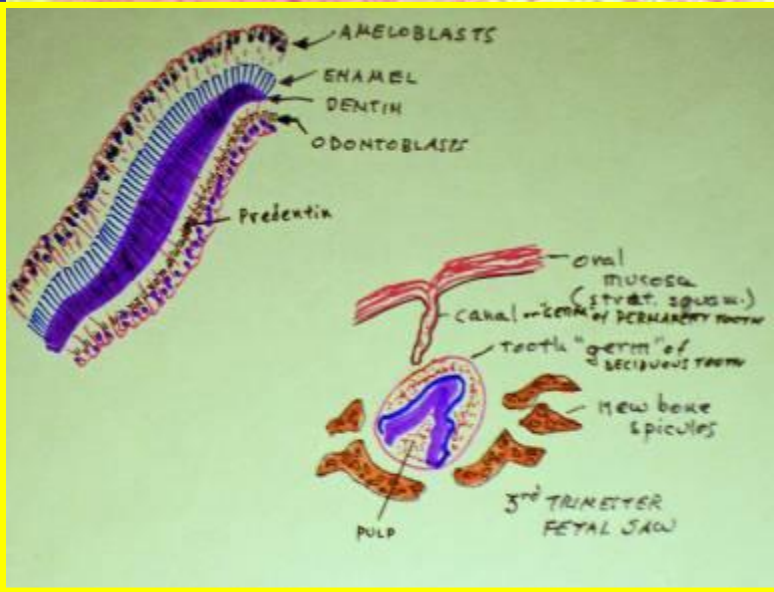 AMELOBLASTS
ENAMEL
DENTIN
ODONTOBLASTS
Predentin
oral
mucosa
(strat. squam.)
canal or "GERM" of PERMANENT TOOTH
tooth "germ" of
DECIDUOUS TOOTH
new bone
spicules
PULP
3rd TRIMESTER
FETAL JAW